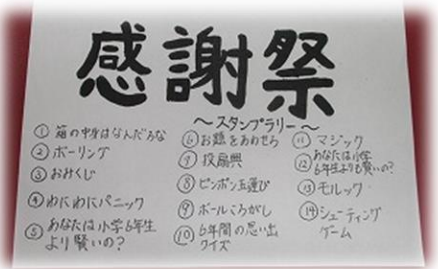 感謝祭
～スタンプラリー～
① 箱の中身はなんだろな
② ボーリング
③ おみくじ
④ わにわにパニック
⑤ あなたは小学6年生
より賢いの?
⑥ お題をあわせろ
⑦ 投扇興
⑧ ピンポン玉運び
⑨ ボールころがし
⑩ 6年間の思い出
クイズ
⑪ マジック
⑫ あなたは小学
6年生よりも賢いの?
⑬ モルック
⑭ シューティング
ゲーム